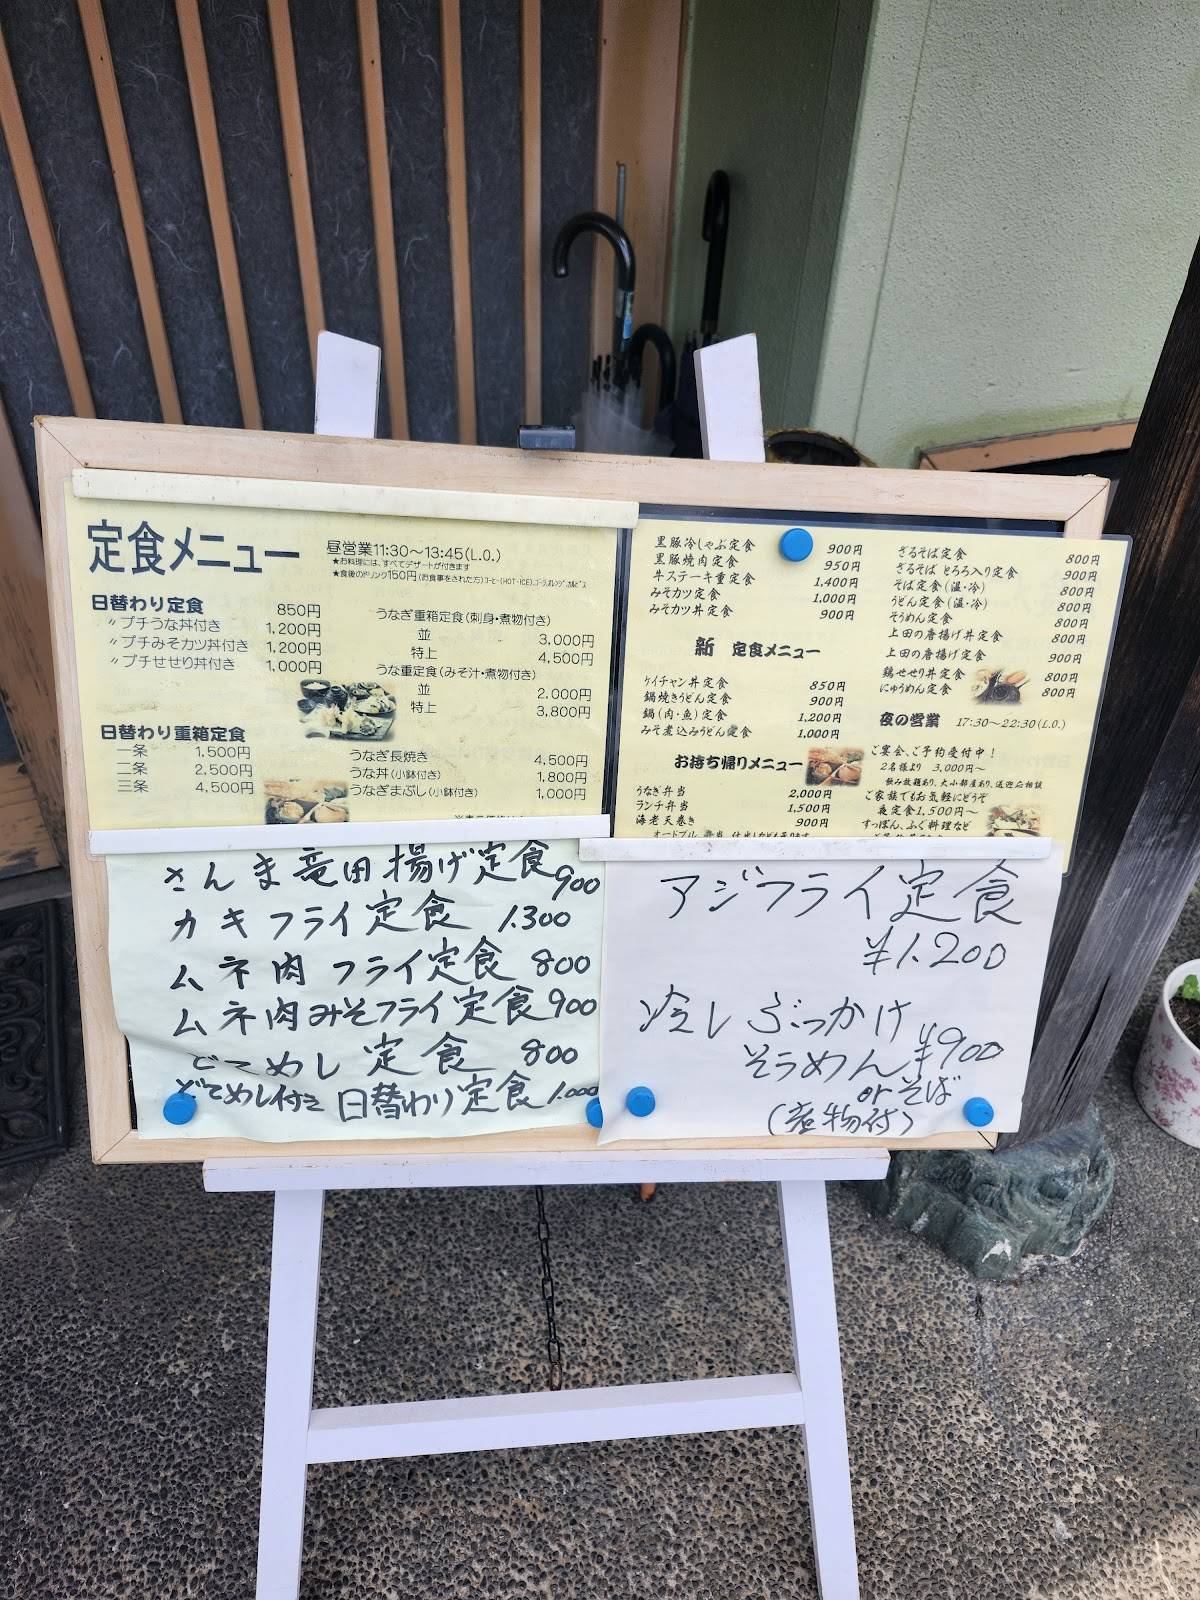 定食メニュー
昼営業11:30～13:45(L.O.)
★お料理には、すべてデザートが付きます
★食後のドリンク150円(お食事をされた方)
日替わり定食 850円
〃プチうな丼付き 1,200円
〃プチみそカツ丼付き 1,200円
〃プチせせり丼付き 1,000円
日替わり重箱定食
一条 1,500円
二条 2,500円
三条 4,500円
うなぎ重箱定食(刺身・煮物付き)
並 3,000円
特上 4,500円
うな重定食(みそ汁・煮物付き)
並 2,000円
特上 3,800円
うなぎ長焼き 4,500円
うな丼(小鉢付き) 1,800円
うなぎまぶし(小鉢付き) 1,000円
黒豚冷しゃぶ定食 900円
黒豚焼肉定食 950円
牛ステーキ重定食 1,400円
みそカツ定食 1,000円
みそカツ丼定食 900円
新 定食メニュー
ケイチャン丼定食 850円
鍋焼きうどん定食 900円
鍋(肉・魚)定食 1,200円
みそ煮込みうどん定食 1,000円
お持ち帰りメニュー
うなぎ弁当 2,000円
ランチ弁当 1,500円
海老天巻き 900円
ざるそば定食 800円
ざるそば とろろ入り定食 900円
そば定食(温・冷) 800円
うどん定食(温・冷) 800円
そうめん定食 800円
上田の唐揚げ丼定食 800円
上田の唐揚げ定食 900円
鶏せせり丼定食 800円
にゅうめん定食 800円
夜の営業 17:30～22:30(L.O.)
ご宴会、ご予約受付中！
2名様より 3,000円～
飲み放題あり、大小部屋あり、送迎応相談
ご家族でもお気軽にどうぞ
夜定食1,500円～
すっぽん、ふぐ料理など
さんま竜田揚げ定食 900
カキフライ定食 1.300
ムネ肉フライ定食 800
ムネ肉みそフライ定食 900
どてめし定食 800
どてめし付き 日替わり定食 1.000
アジフライ定食
¥1.200
冷しぶっかけ
そうめん ¥900
or そば